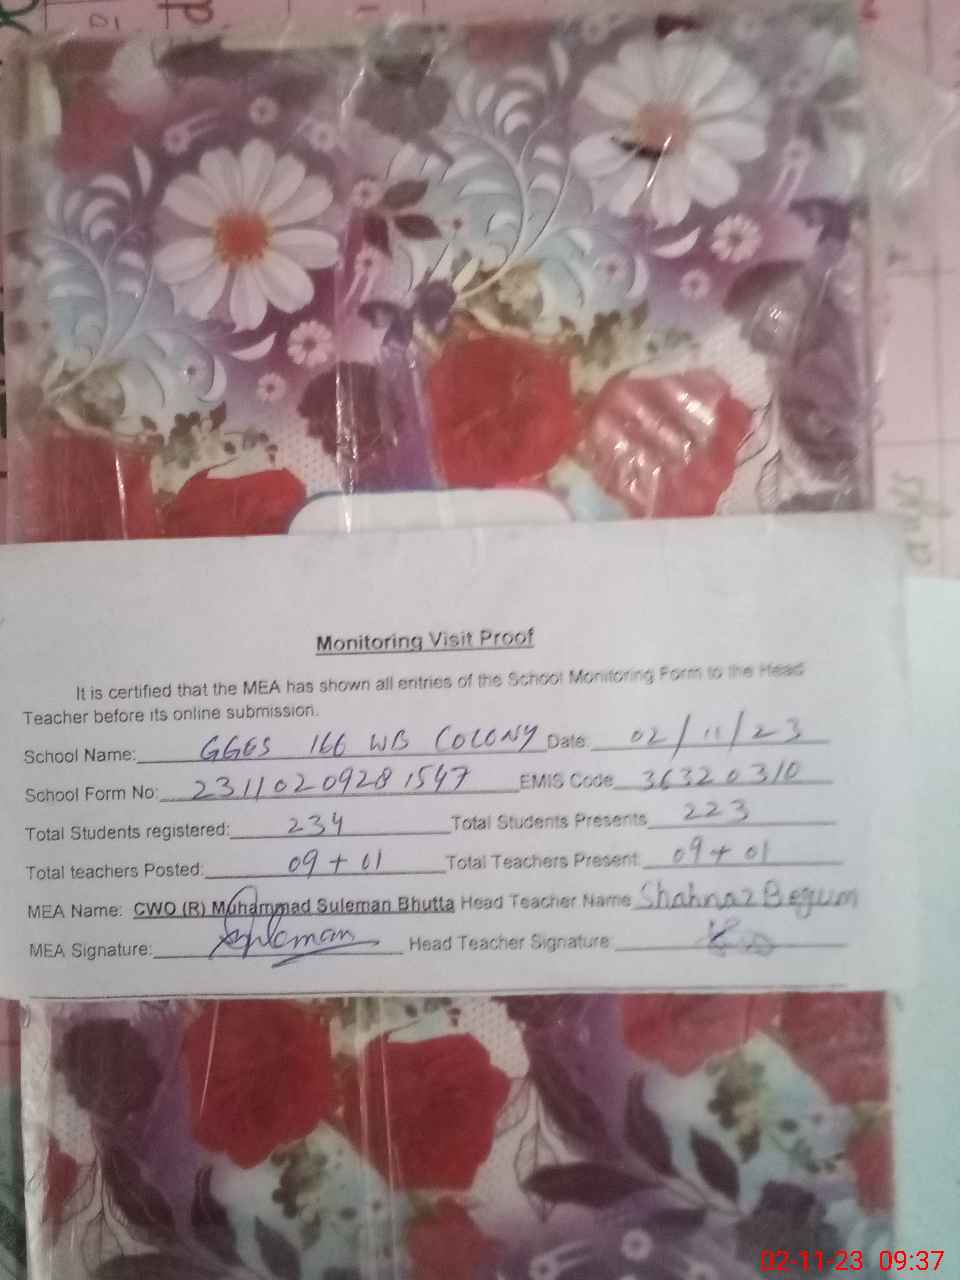 Monitoring Visit Proof
It is certified that the MEA has shown all entries of the School Monitoring Form to the Head
Teacher before its online submission.
School Name: GGES 166 WB COLONY Date: 02/11/23
School Form No: 23110209281547 EMIS Code 36320310
Total Students registered: 234 Total Students Presents 223
Total teachers Posted: 09 + 01 Total Teachers Present: 09 + 01
MEA Name: CWO (R) Muhammad Suleman Bhutta Head Teacher Name Shahnaz Begum
MEA Signature: Suleman Head Teacher Signature:
ays
02-11-23 09:37